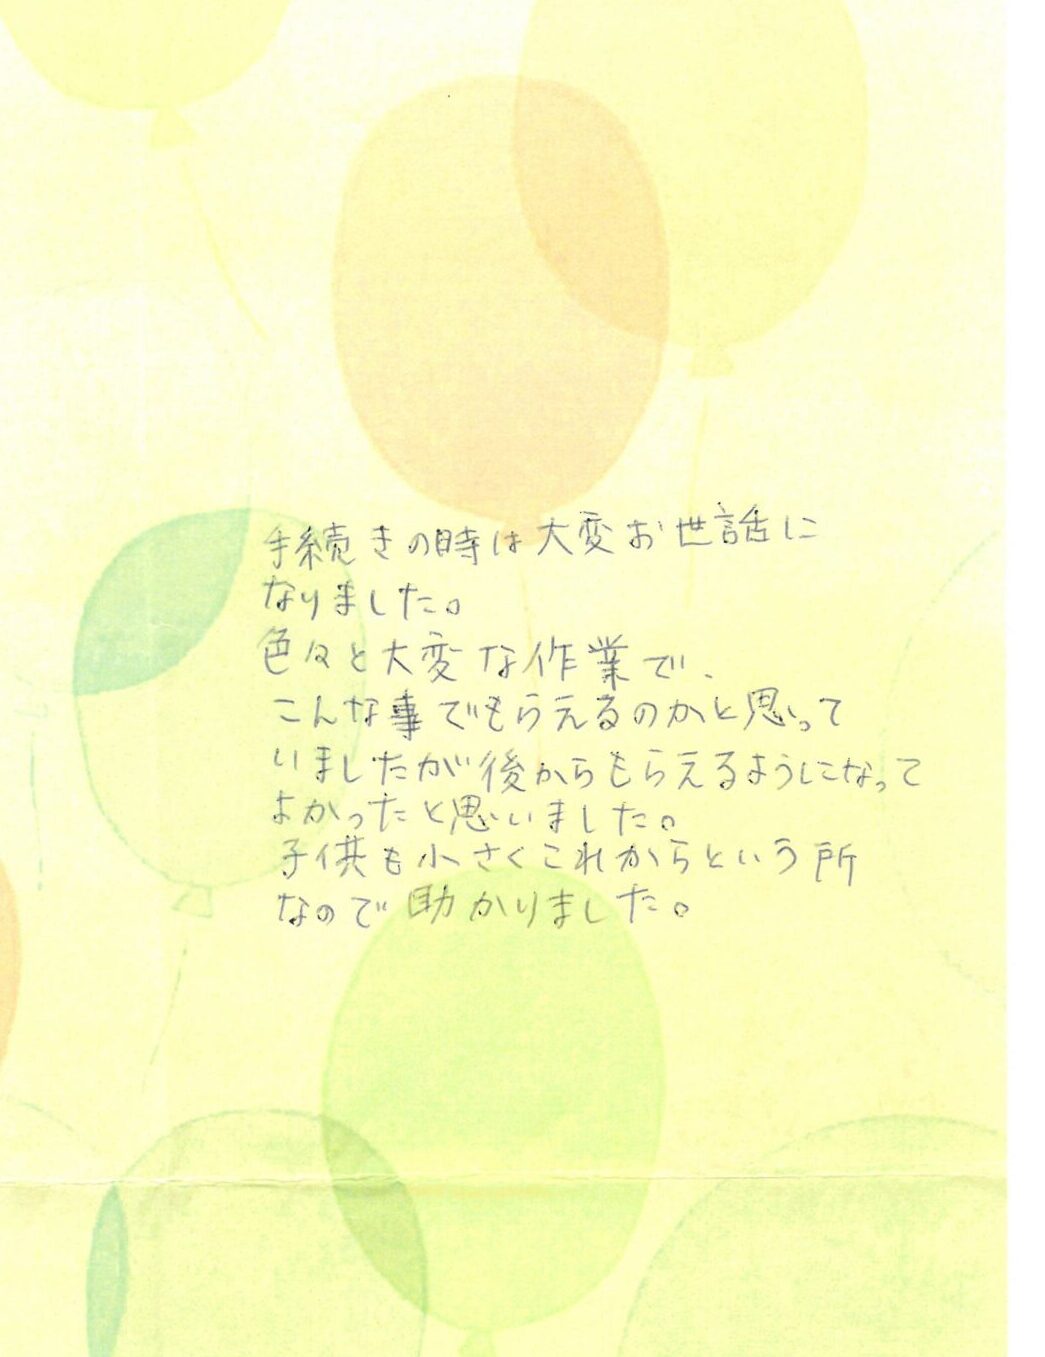 手続きの時は大変お世話に
なりました。
色々と大変な作業で、
こんな事でもらえるのかと思って
いましたが後からもらえるようになって
よかったと思いました。
子供も小さくこれからという所
なので助かりました。